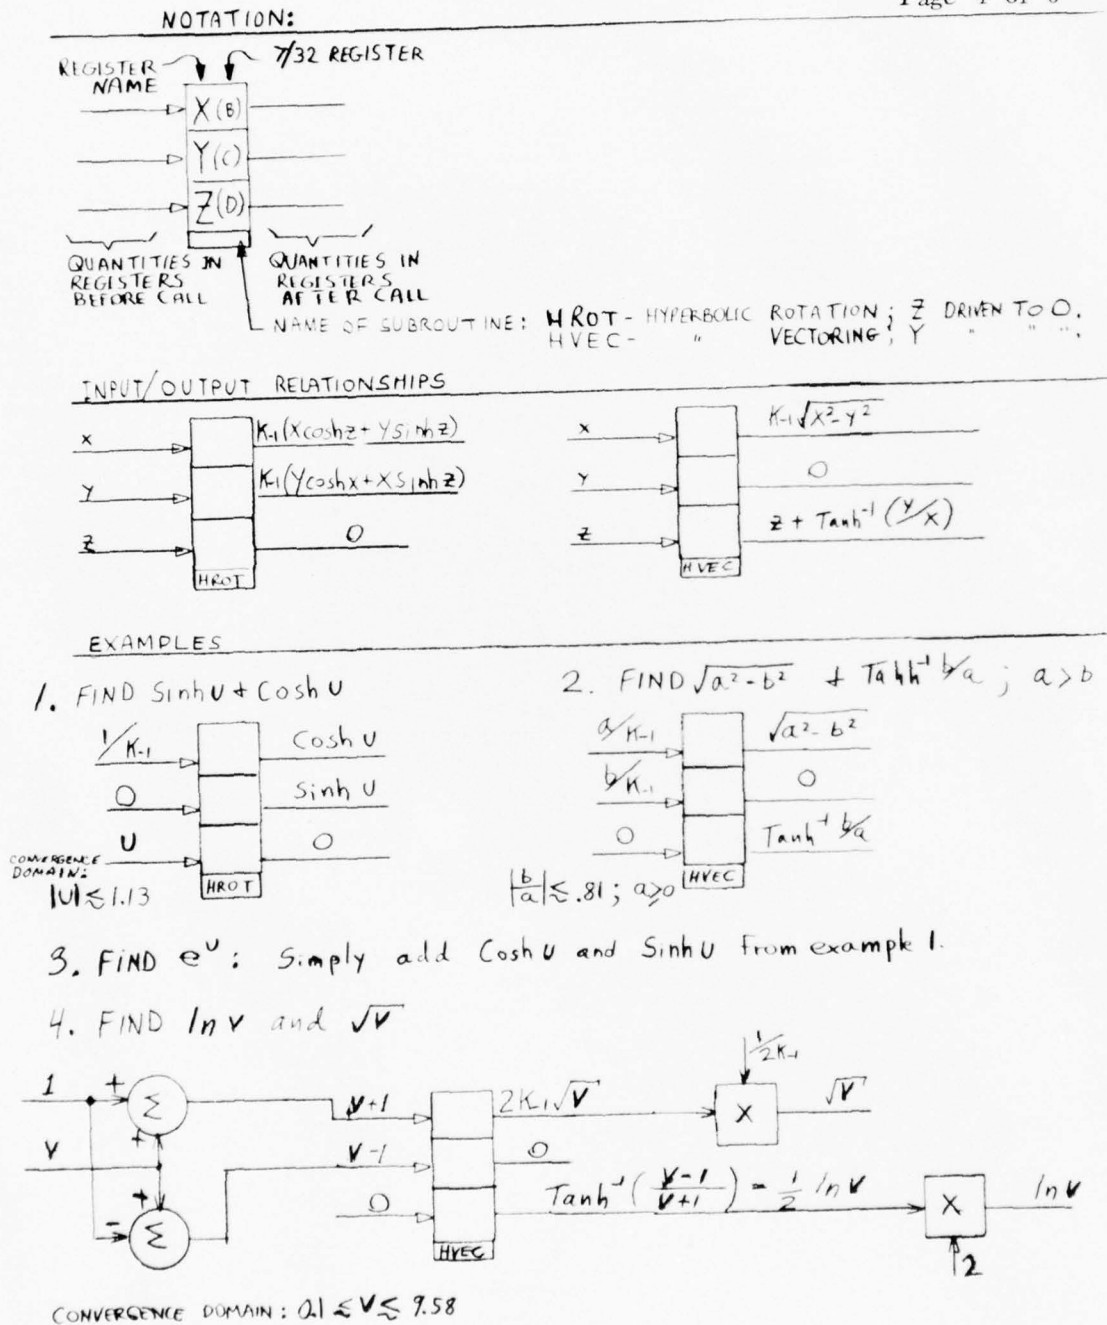 Page 4 of 6
NOTATION:
REGISTER NAME
7/32 REGISTER
X(B)
Y(C)
Z(D)
QUANTITIES IN REGISTERS BEFORE CALL
QUANTITIES IN REGISTERS AFTER CALL
NAME OF SUBROUTINE: HROT - HYPERBOLIC ROTATION; Z DRIVEN TO 0.
HVEC - " VECTORING; Y " " ".
INPUT/OUTPUT RELATIONSHIPS
X K-1(Xcoshz + Ysinhz)
Y K-1(Ycoshx + Xsinhz)
Z 0
HROT
X K-1√X²-Y²
Y 0
Z z + Tanh⁻¹(Y/X)
HVEC
EXAMPLES
1. FIND SinhU + CoshU
1/K-1 Cosh U
0 Sinh U
U 0
HROT
CONVERGENCE DOMAIN:
|U| ≲ 1.13
2. FIND √a²-b² + Tanh⁻¹ b/a ; a>b
a/K-1 √a²-b²
b/K-1 0
0 Tanh⁻¹ b/a
HVEC
|b/a| ≲ .81 ; a≥0
3. FIND e^U : Simply add Cosh U and Sinh U from example 1.
4. FIND ln V and √V
1 + Σ V+1 2K-1√V X √V
1/2K-1
V +
V-1 0
+ - Σ
0 Tanh⁻¹(V-1/V+1) = 1/2 ln V X ln V
2
HVEC
CONVERGENCE DOMAIN: 0.1 ≲ V ≲ 9.58